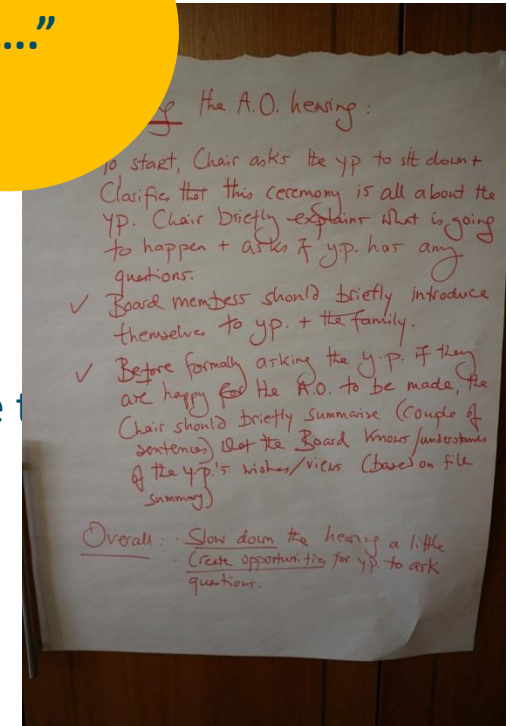 ...."
the A.O. hearing:
To start, Chair asks the yp to sit down +
Clarifies that this ceremony is all about the
yp. Chair briefly explains what is going
to happen + asks if y.p. has any
questions.
✓ Board members should briefly introduce
themselves to yp. + the family.
✓ Before formally asking the y.p. if they
are happy for the A.O. to be made, the
Chair should briefly summarise (couple of
sentences) what the Board knows/understands
of the y.p.'s wishes/views (based on file
summary)
Overall: · Slow down the hearing a little
· Create opportunities for yp. to ask
questions.